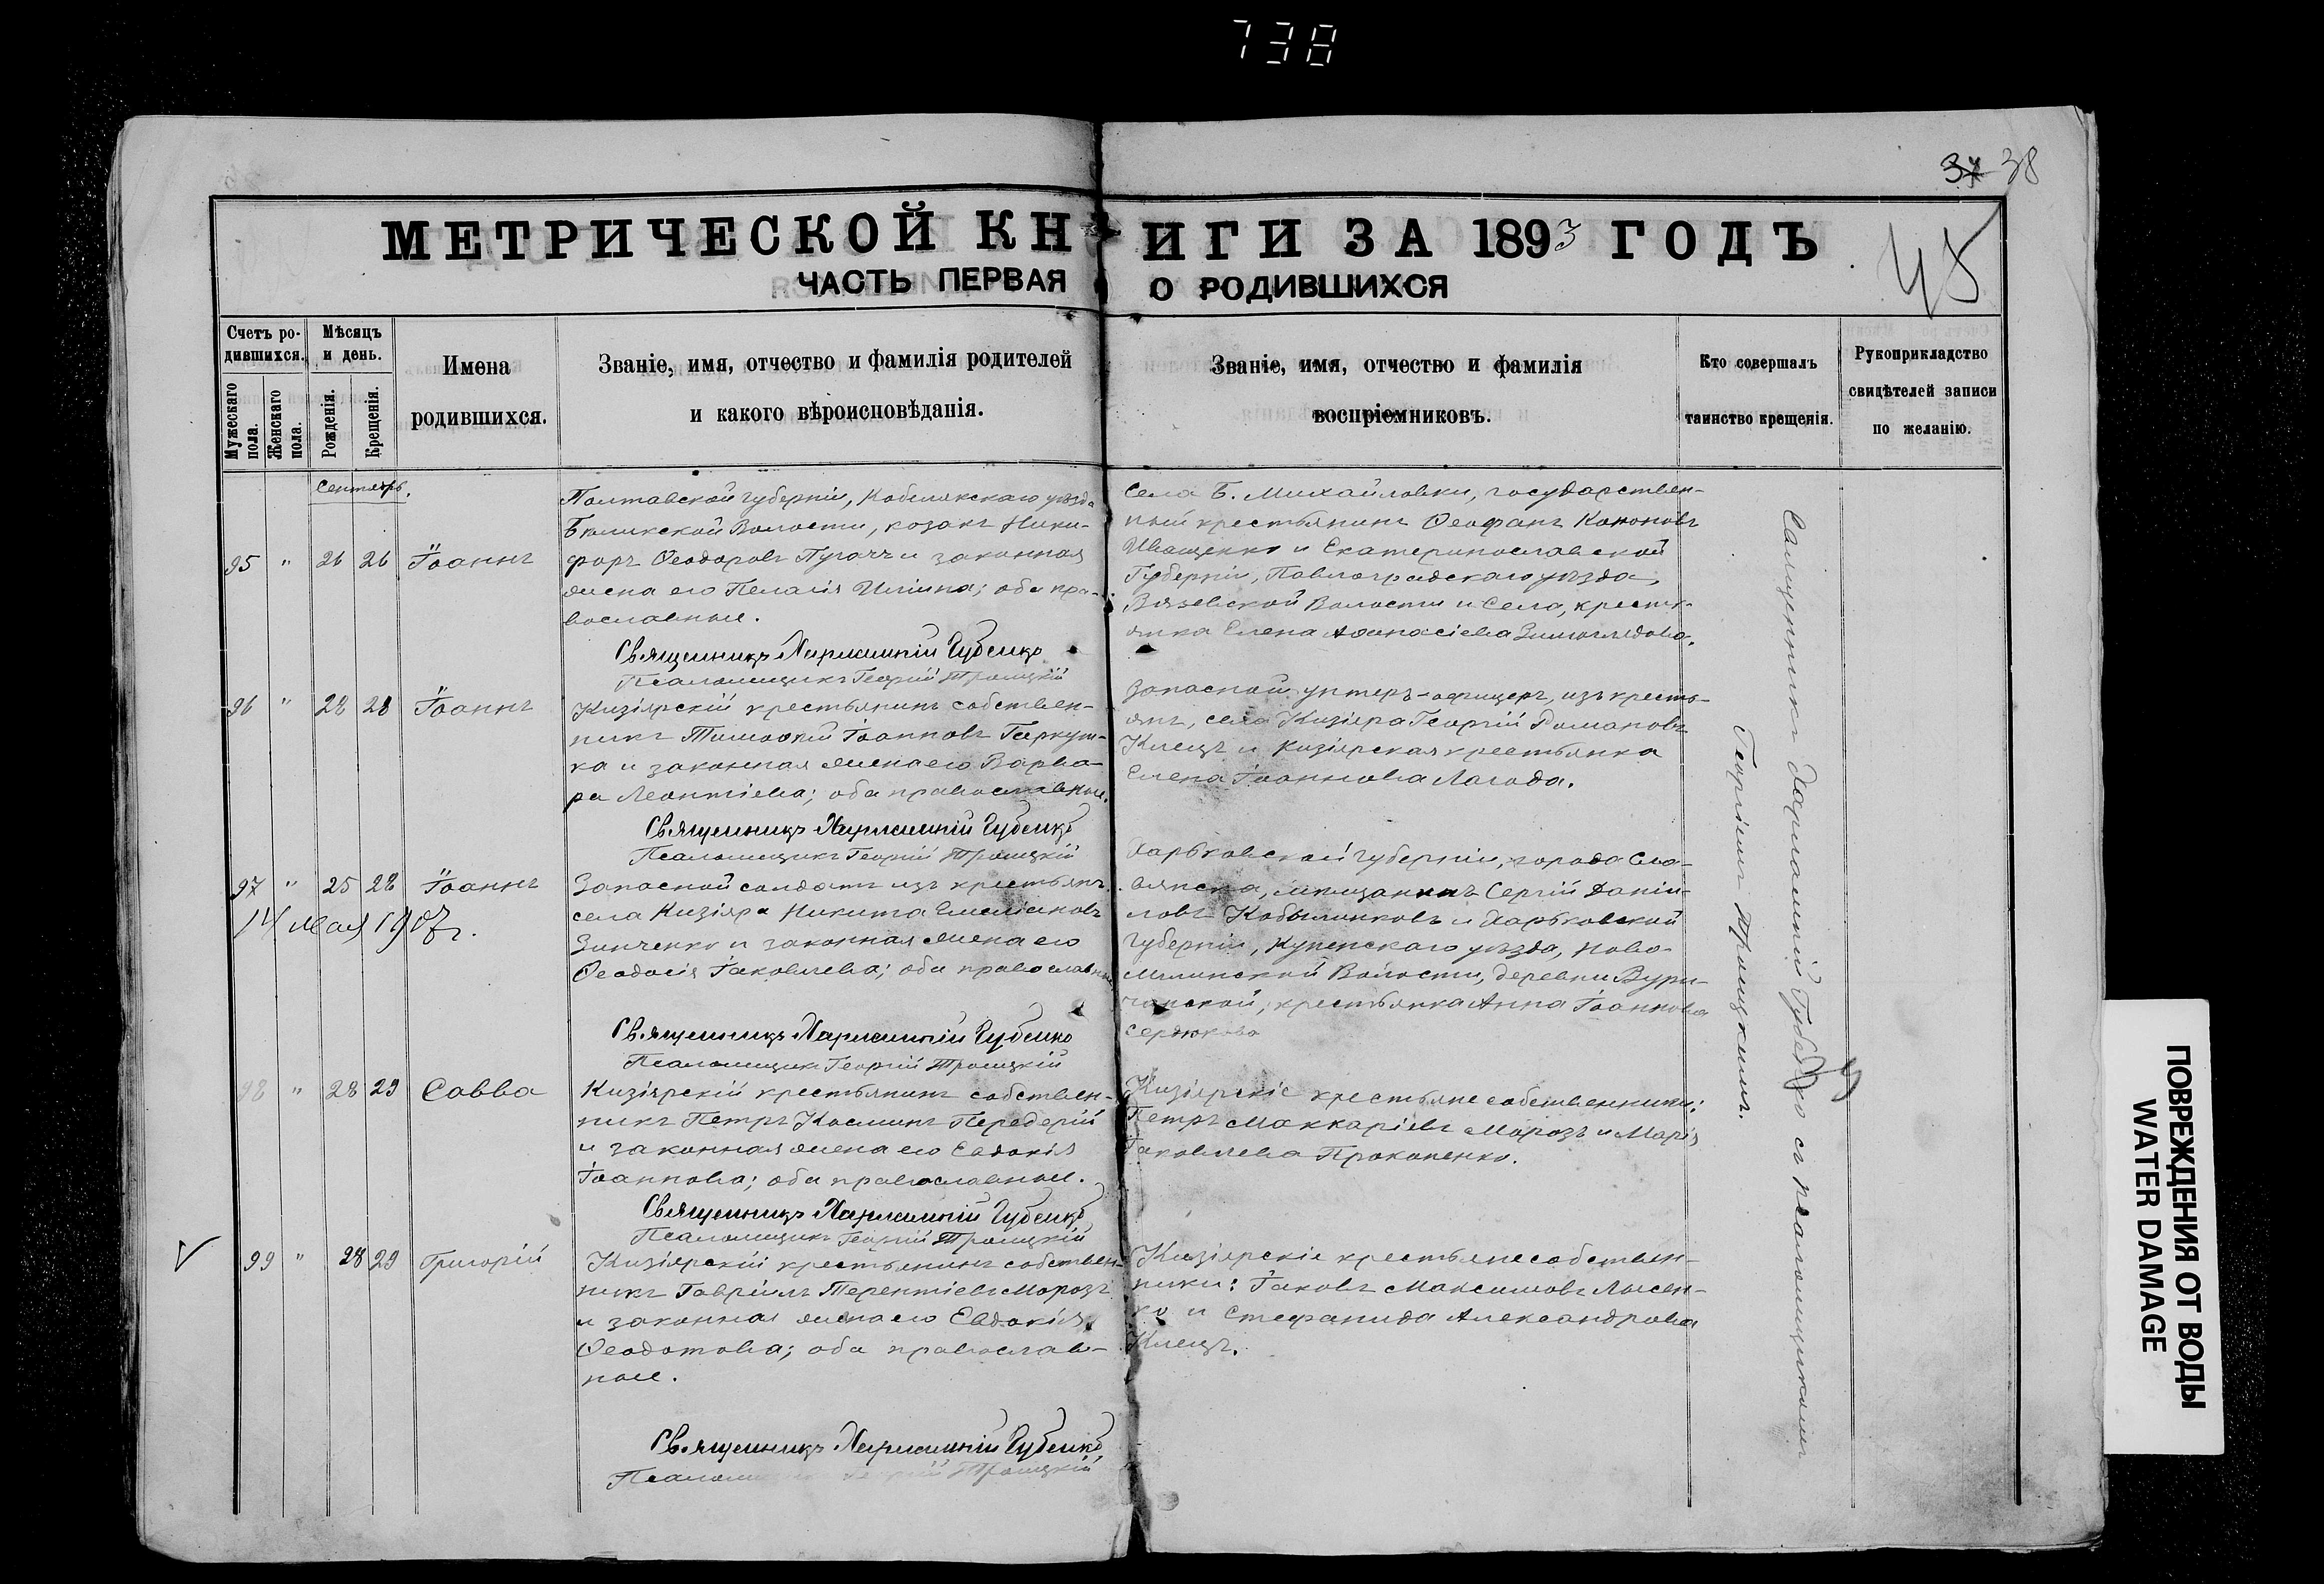 738
37 38
МЕТРИЧЕСКОЙ КНИГИ ЗА 1893 ГОДЪ
45
ЧАСТЬ ПЕРВАЯ О РОДИВШИХСЯ
Счетъ родившихся.
Мужескаго пола.
Женскаго пола.
Мѣсяцъ и день.
Рожденія.
Крещенія.
Имена
родившихся.
Званіе, имя, отчество и фамилія родителей
и какого вѣроисповѣданія.
Званіе, имя, отчество и фамилія
воспріемниковъ.
Кто совершалъ
таинство крещенія.
Рукоприкладство
свидѣтелей записи
по желанію.
Сентябрь.
95 " 26 26 Іоаннъ
Полтавской губерніи, Кобелякскаго уѣзда
Бѣликской Волости, козакъ Ники-
форъ Ѳеодоровъ Пугачъ и законная
жена его Пелагія Ильина; оба пра-
вославные.
Священникъ Харлампій Губенко
Псаломщикъ Георгій Троицкій
Села Б. Михайловки, государствен-
ный крестьянинъ Ѳеофанъ Кононовъ
Иващенко и Екатеринославской
Губерніи, Павлоградскаго уѣзда,
Вязовской Волости и Села, крестья-
янка Елена Аѳанасіева
96 " 28 28 Іоаннъ
Кизіярскій крестьянинъ собствен-
никъ Тимоѳей Іоанновъ Гаркуш-
ка и законная жена его Варва-
ра Леонтіева; оба православные.
Священникъ Харлампій Губенко
Псаломщикъ Георгій Троицкій
Запасной унтеръ-офицеръ, изъ кресть-
янъ, села Кизіяра Георгій Романовъ
Клецъ и Кизіярская крестьянка
Елена Іоаннова Лагода.
97 " 25 28 Іоаннъ
14 мая 1907 г.
Запасной солдатъ изъ крестьянъ
села Кизіяра Никита Емеліановъ
Зинченко и законная жена его
Ѳеодосія Іаковлева; оба православные
Священникъ Харлампій Губенко
Псаломщикъ Георгій Троицкій
Харьковской губерніи, города Сла-
вянска, мѣщанинъ Сергій Даніи-
ловъ Кобылинковъ и Харьковской
Губерніи, Купенскаго уѣзда, Ново-
млинской Волости, деревни
крестьянка Анна Іоаннова
Сердюкова
98 " 28 29 Савва
Кизіярскій крестьянинъ собствен-
никъ Петръ Косминъ Передерій
и законная жена его Евдокія
Іоаннова; оба православные.
Священникъ Харлампій Губенко
Псаломщикъ Георгій Троицкій
Кизіярскіе крестьяне собственники:
Петръ Маккаріевъ Морозъ и Марія
Іаковлева Прокопенко.
99 " 28 29 Григорій
Кизіярскій крестьянинъ собствен-
никъ Гавріилъ Терентіевъ Морозъ
и законная жена его Евдокія
Ѳеодотова; оба православ-
ные.
Священникъ Харлампій Губенко
Псаломщикъ Георгій Троицкій
Кизіярскіе крестьяне собствен-
ники: Іаковъ Максимовъ Лысен-
ко и Стефанида Александрова
Клецъ.
Священникъ Харлампій Губенко съ псаломщикомъ
Георгіемъ Троицкимъ.
ПОВРЕЖДЕНИЯ ОТ ВОДЫ
WATER DAMAGE